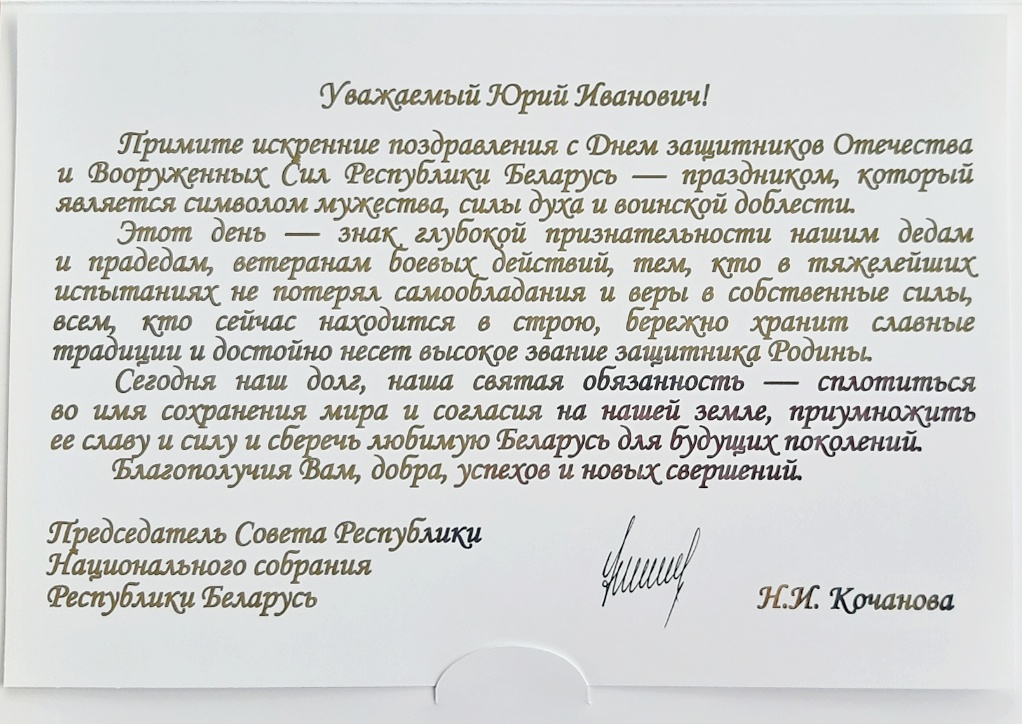 Уважаемый Юрий Иванович!
Примите искренние поздравления с Днем защитников Отечества
и Вооруженных Сил Республики Беларусь — праздником, который
является символом мужества, силы духа и воинской доблести.
Этот день — знак глубокой признательности нашим дедам
и прадедам, ветеранам боевых действий, тем, кто в тяжелейших
испытаниях не потерял самообладания и веры в собственные силы,
всем, кто сейчас находится в строю, бережно хранит славные
традиции и достойно несет высокое звание защитника Родины.
Сегодня наш долг, наша святая обязанность — сплотиться
во имя сохранения мира и согласия на нашей земле, приумножить
ее славу и силу и сберечь любимую Беларусь для будущих поколений.
Благополучия Вам, добра, успехов и новых свершений.
Председатель Совета Республики
Национального собрания
Республики Беларусь
Н.И. Кочанова